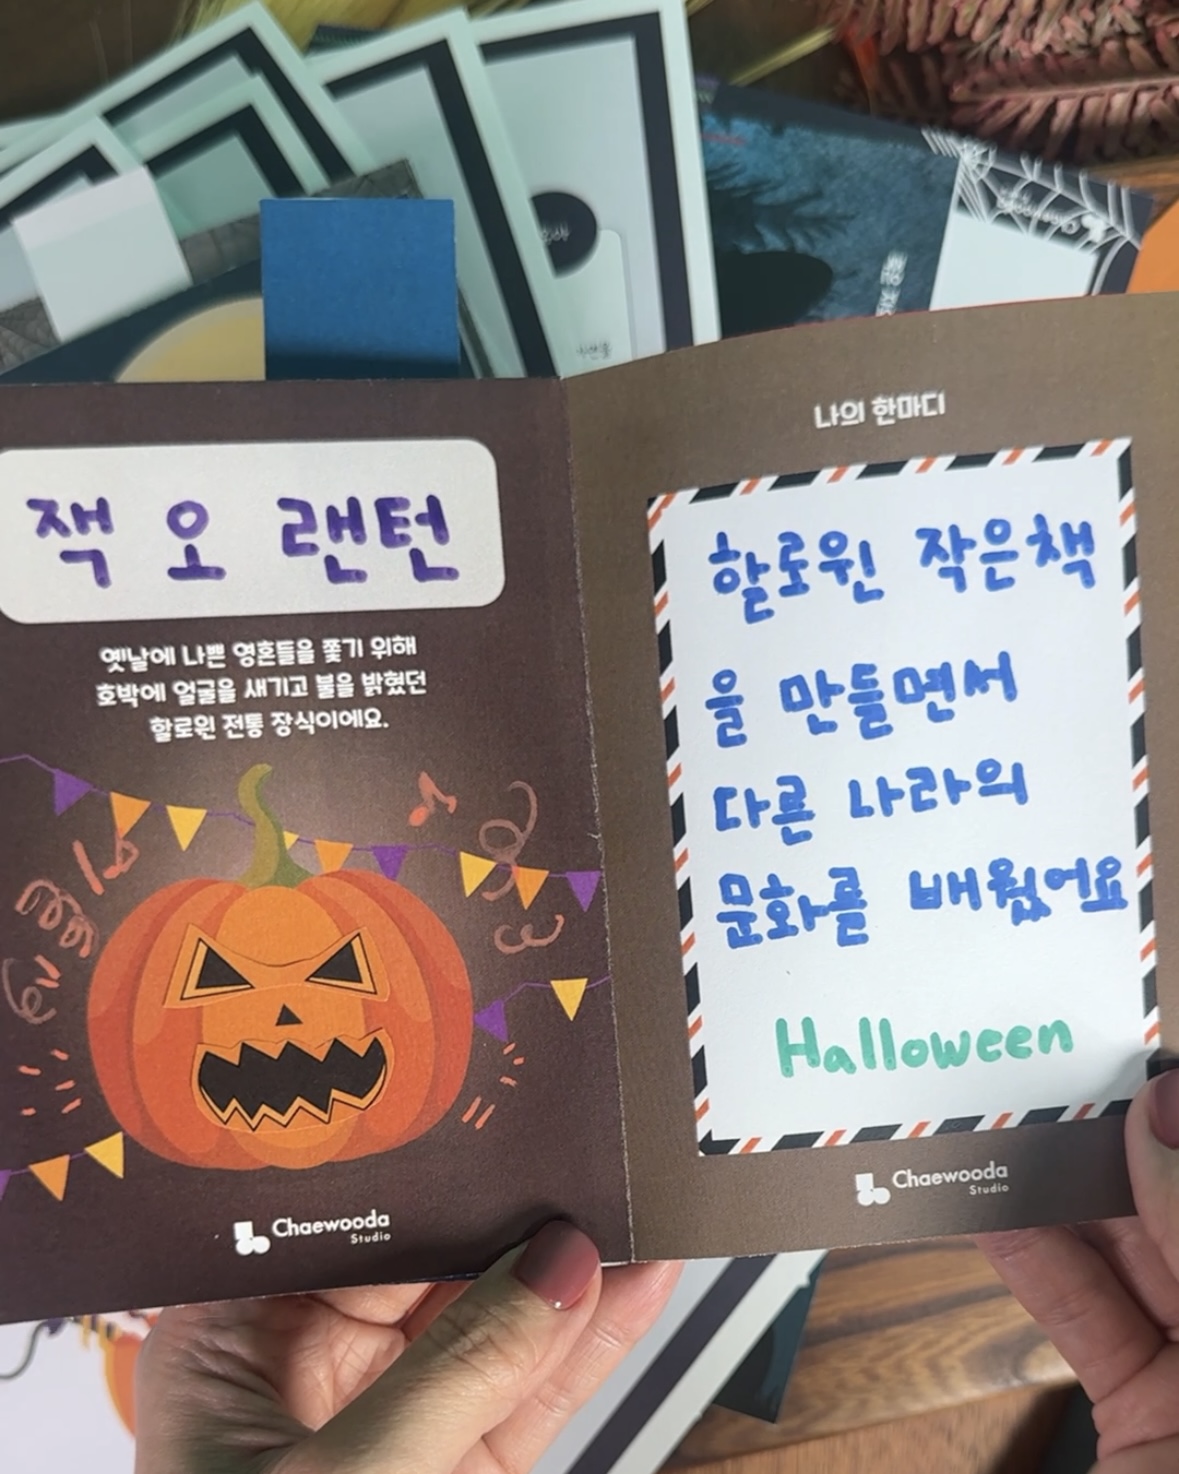 잭 오 랜턴
옛날에 나쁜 영혼들을 쫓기 위해
호박에 얼굴을 새기고 불을 밝혔던
할로윈 전통 장식이에요.
Chaewooda
Studio
나의 한마디
할로윈 작은책
을 만들면서
다른 나라의
문화를 배웠어요
Halloween
Chaewooda
Studio